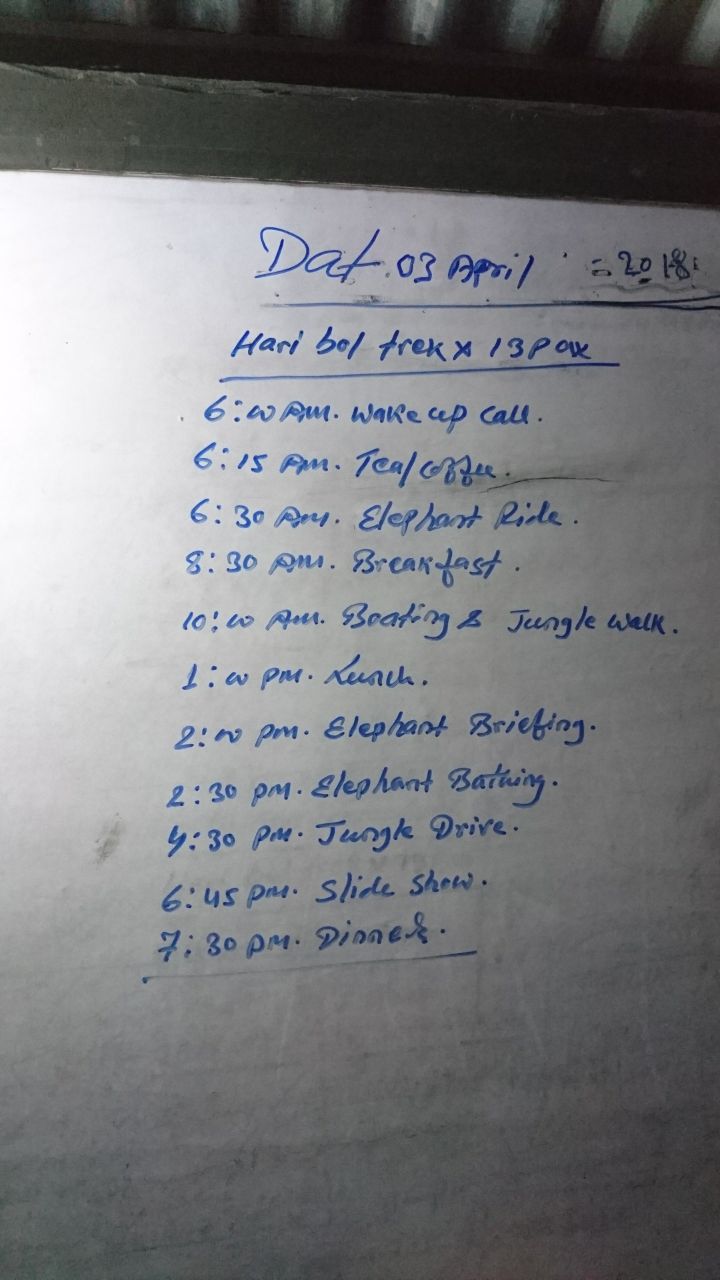 Dat. 03 April = 2018
Hari bol trek x 13 Pax
6:00 Am. Wake up call.
6:15 Am. Tea/coffee.
6:30 Am. Elephant Ride.
8:30 Am. Breakfast.
10:00 Am. Boating & Jungle walk.
1:00 pm. Lunch.
2:00 pm. Elephant Briefing.
2:30 pm. Elephant Bathing.
4:30 pm. Jungle Drive.
6:45 pm. Slide Show.
7:30 pm. Dinner.